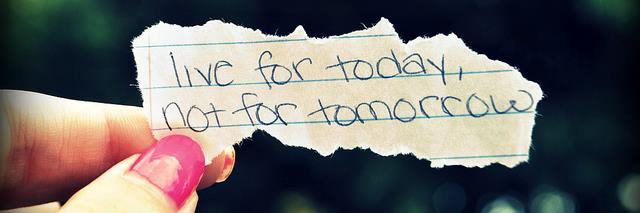 live for today,
not for tomorrow